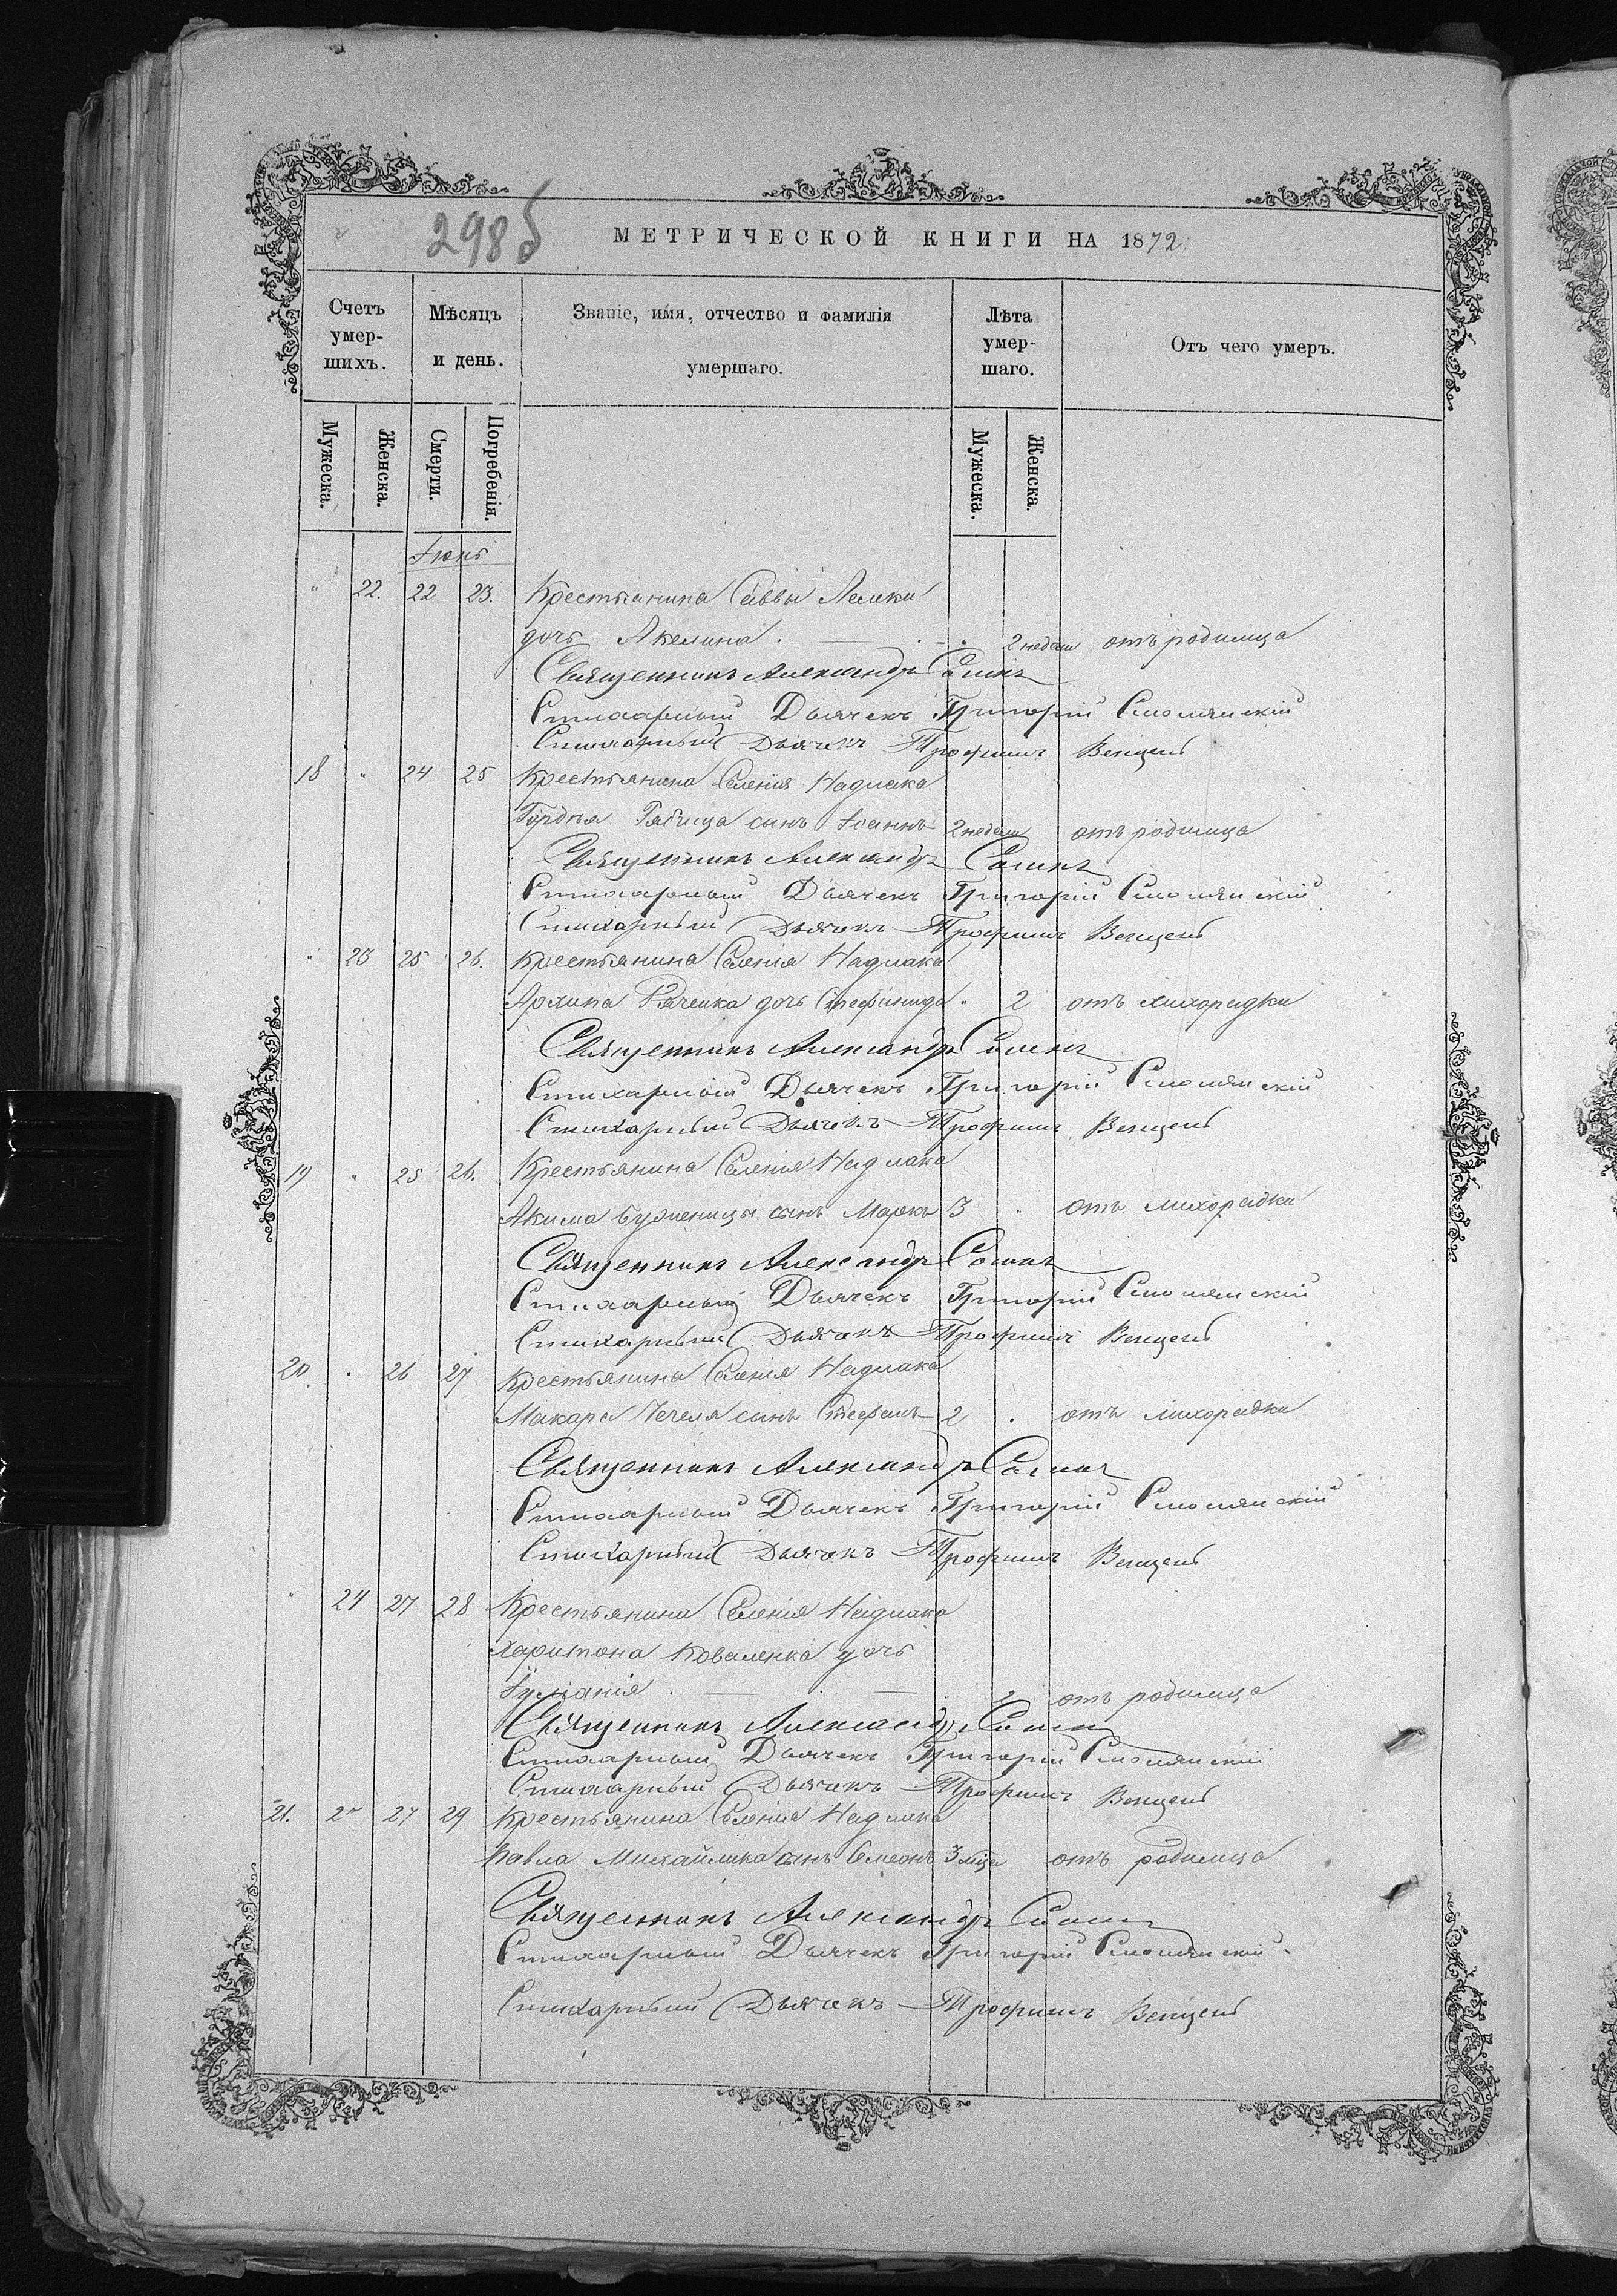 298б
МЕТРИЧЕСКОЙ КНИГИ НА 1872
Счетъ умер-шихъ.
Мѣсяцъ и день.
Званіе, имя, отчество и фамилія умершаго.
Лѣта умер-шаго.
Отъ чего умеръ.
Мужеска.
Женска.
Смерти.
Погребенія.
Мужеска.
Женска.
Іюнь
" 22. 22 23. Крестьянина Саввы
дочь Акелина . — . — . 2 недели отъ родимца
Священникъ Александръ
Стихарный Дьячекъ Григорій Смолянскій
Стихарный Дьячекъ Трофимъ Венцей
18 " 24 25 Крестьянина Селенія Надлака
Гордѣя сынъ Іоаннъ 2 недели отъ родимца
Священникъ Александръ
Стихарный Дьячекъ Григорій Смолянскій
Стихарный Дьячекъ Трофимъ Венцей
" 23 25 26. Крестьянина Селенія Надлака
Архипа дочь Стефанида " 2 отъ лихорадки
Священникъ Александръ
Стихарный Дьячекъ Григорій Смолянскій
Стихарный Дьячекъ Трофимъ Венцей
19 " 25 26. Крестьянина Селенія Надлака
Акима сынъ Маркъ 3 . отъ лихорадки
Священникъ Александръ
Стихарный Дьячекъ Григорій Смолянскій
Стихарный Дьячекъ Трофимъ Венцей
20. " 26 27 Крестьянина Селенія Надлака
Макара Чечеля сынъ Стефанъ 2 . отъ лихорадки
Священникъ Александръ
Стихарный Дьячекъ Григорій Смолянскій
Стихарный Дьячекъ Трофимъ Венцей
" 24 27 28 Крестьянина Селенія Надлака
Харитона Коваленка дочь
Іуліанія . — . — . 2 отъ родимца
Священникъ Александръ
Стихарный Дьячекъ Григорій Смолянскій
Стихарный Дьячекъ Трофимъ Венцей
21. 27 29 Крестьянина Селенія Надлака
Павла Михайлика сынъ Симеонъ 3 отъ родимца
Священникъ Александръ
Стихарный Дьячекъ Григорій Смолянскій
Стихарный Дьячекъ Трофимъ Венцей